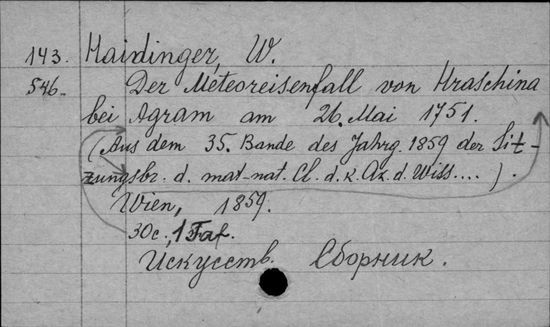 143. Haidinger, W.
546. Der Meteoreisenfall von Hraschina
bei Agram am 26. Mai 1751.
(Aus dem 35. Bande des Jahrg. 1859 der Sit-
zungsbr. d. mat-nat. Cl. d. K. Ak. d. Wiss....).
Wien, 1859.
30 c., 1 Taf.
Искусств. Сборник.